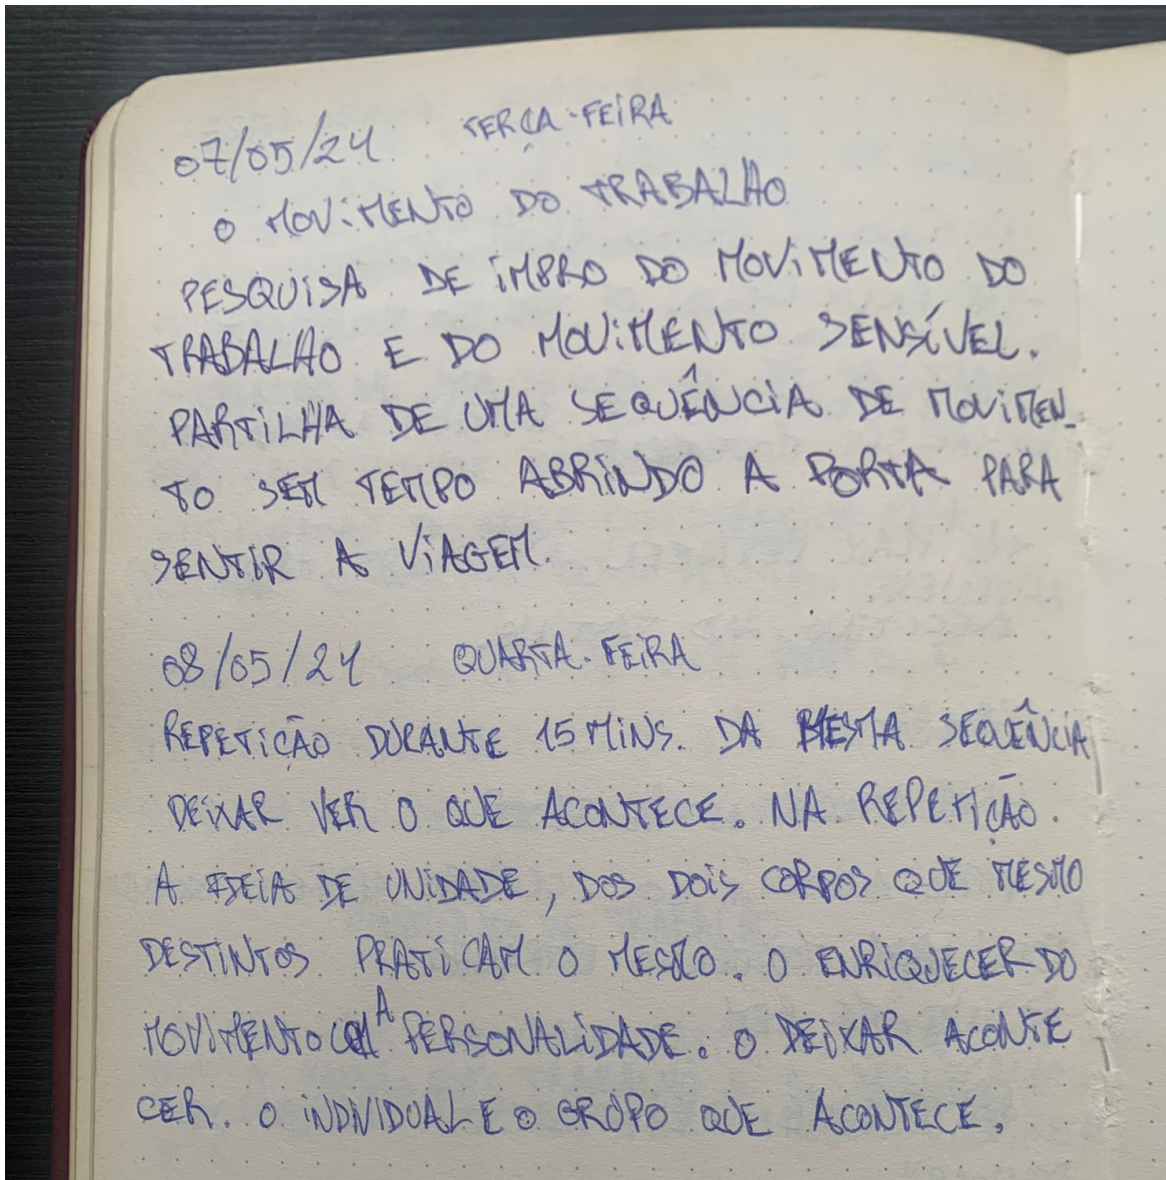 07/05/24 TERÇA-FEIRA
O MOVIMENTO DO TRABALHO
PESQUISA DE IMPRO DO MOVIMENTO DO
TRABALHO E DO MOVIMENTO SENSÍVEL.
PARTILHA DE UMA SEQUÊNCIA DE MOVIMEN_
TO SEM TEMPO ABRINDO A PORTA PARA
SENTIR A VIAGEM.
08/05/24 QUARTA-FEIRA
REPETIÇÃO DURANTE 15 MINS. DA MESMA SEQUÊNCIA
DEIXAR VER O QUE ACONTECE. NA REPETIÇÃO.
A IDEIA DE UNIDADE, DOS DOIS CORPOS QUE MESMO
DESTINTOS PRATICAM O MESMO. O ENRIQUECER DO
MOVIMENTO COM A PERSONALIDADE. O DEIXAR ACONTE
CER. O INDIVIDUAL E O GRUPO QUE ACONTECE.